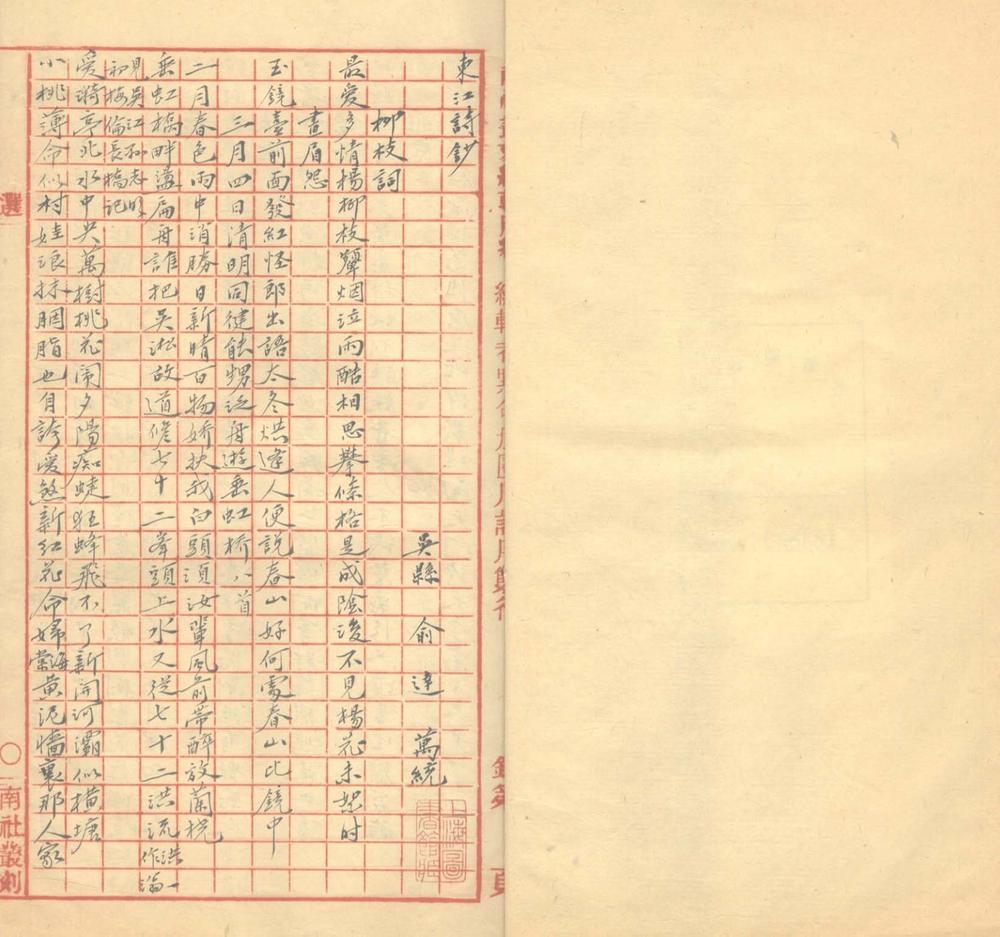 東江詩鈔
吳縣 俞達 萬統
柳枝詞
最愛多情楊柳枝顰烟泣雨酷相思攀條格是成陰後不見楊花未恕时
畫眉怨
玉鏡臺前面發紅怪郎出語太冬烘逢人便説春山好何處春山比鏡中
三月四日清明同健能甥泛舟遊垂虹桥八首
二月春色雨中消勝日新晴百物娇扶我白頭須汝輩風前帶醉放蘭桡
垂虹橋畔蕩扁舟誰把吳淞故道修七十二峯頭上水又從七十二洪流 洪一作
見吳江孙志明
初梅倫長橋記
愛漪亭北水中央萬樹桃花闹夕陽痴蜨狂蜂飛不了新開河灞似橫塘
小桃薄命似村娃浪抹胭脂也自誇愛煞新紅花命婦 海棠 黃泥墻裏那人家
選
南社叢刻
上海圖書館藏
頁